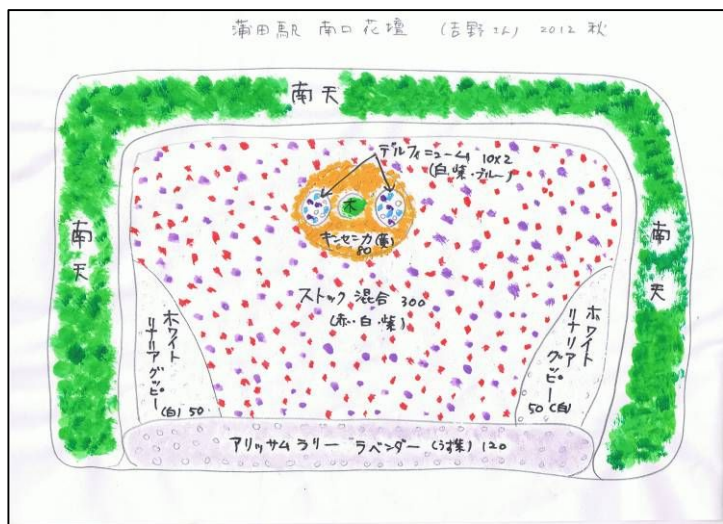 蒲田駅 南口花壇 (吉野さん) 2012 秋
南天
デルフィニューム 10×2
(白・紫・ブルー)
木
キンセンカ(黄)
80
南天
南天
ストック 混合 300
(赤・白・紫)
ホワイト
リナリアグッピー
(白) 50
ホワイト
リナリア
グッピー
50(白)
アリッサム ラリー ラベンダー (うす紫) 120